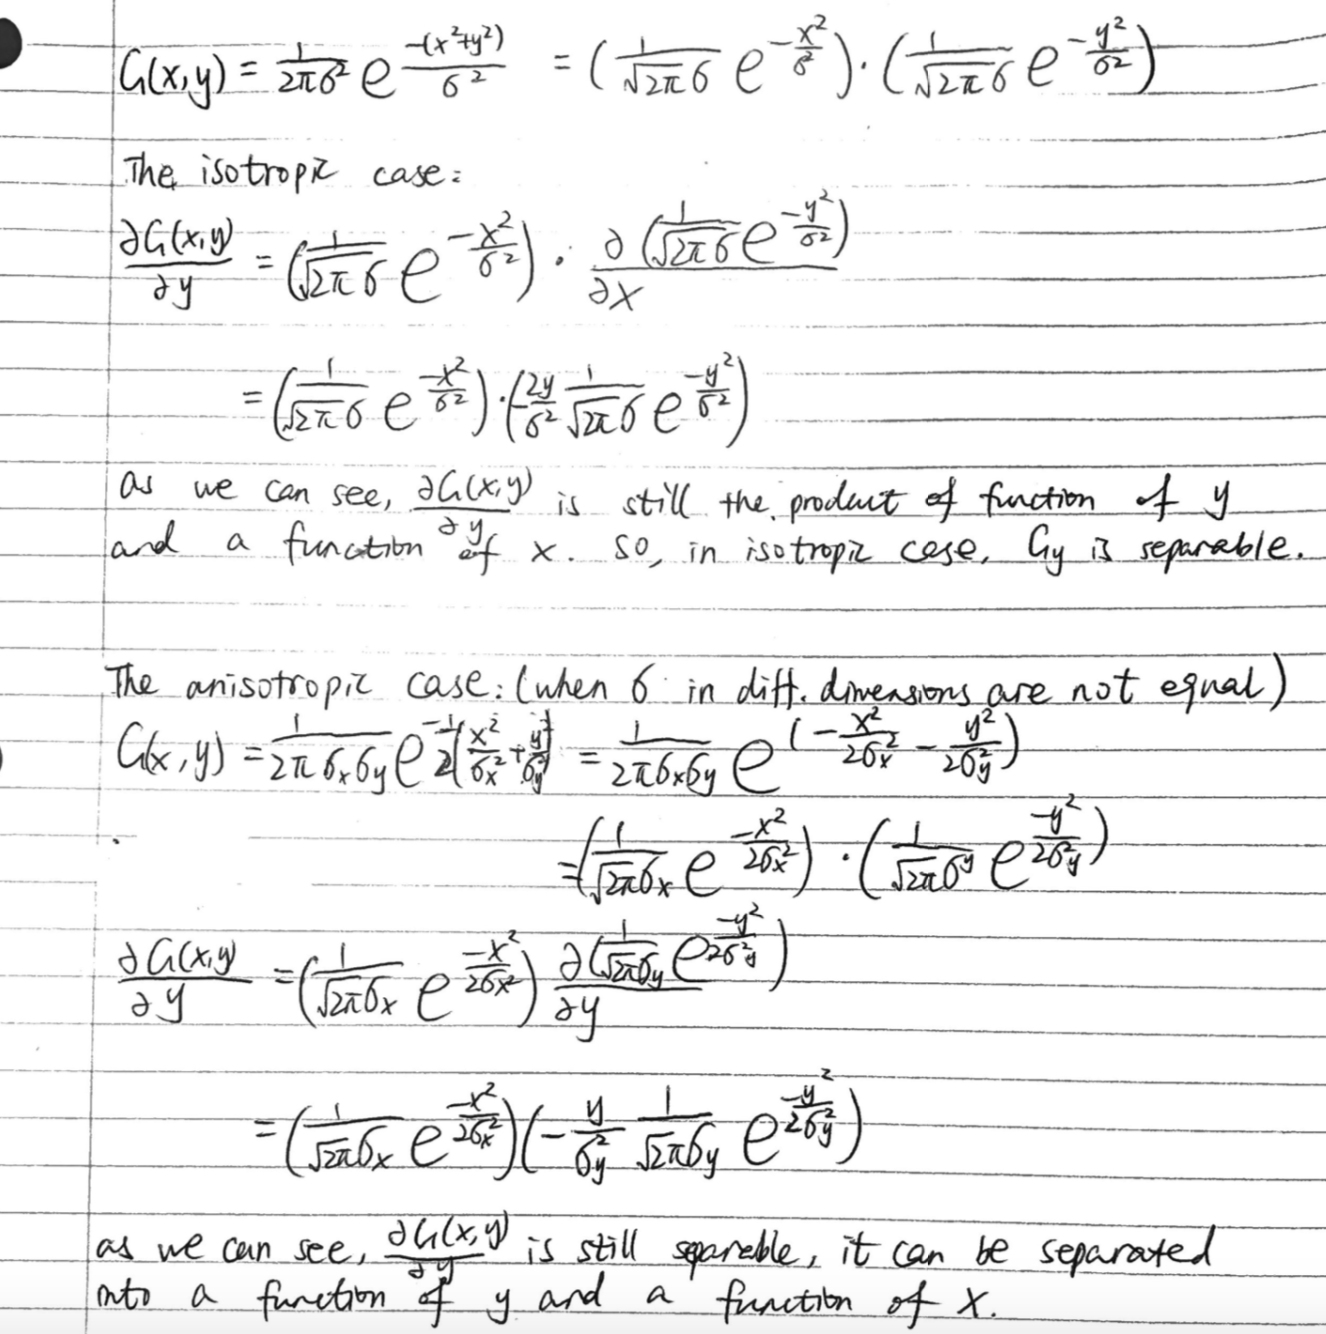 G(x,y) = 1/(2πσ²) e^(-(x²+y²)/σ²) = (1/(√2π σ) e^(-x²/σ²)) · (1/(√2π σ) e^(-y²/σ²))
The isotropic case:
∂G(x,y)/∂y = (1/(√2π σ) e^(-x²/σ²)) · ∂(1/(√2π σ) e^(-y²/σ²))/∂x
= (1/(√2π σ) e^(-x²/σ²)) · (-2y/σ² 1/(√2π σ) e^(-y²/σ²))
as we can see, ∂G(x,y)/∂y is still the product of function of y
and a function of x. so, in isotropic case, Gy is separable.
The anisotropic case: (when σ in diff. dimensions are not equal)
G(x,y) = 1/(2π σx σy) e^(-1/2(x²/σx² + y²/σy²)) = 1/(2π σx σy) e^(-x²/2σx² - y²/2σy²)
= (1/(√2π σx) e^(-x²/2σx²)) · (1/(√2π σy) e^(-y²/2σy²))
∂G(x,y)/∂y = (1/(√2π σx) e^(-x²/2σx²)) ∂(1/(√2π σy) e^(-y²/2σy²))/∂y
= (1/(√2π σx) e^(-x²/2σx²)) (-y/σy² 1/(√2π σy) e^(-y²/2σy²))
as we can see, ∂G(x,y)/∂y is still separable, it can be separated
into a function of y and a function of x.